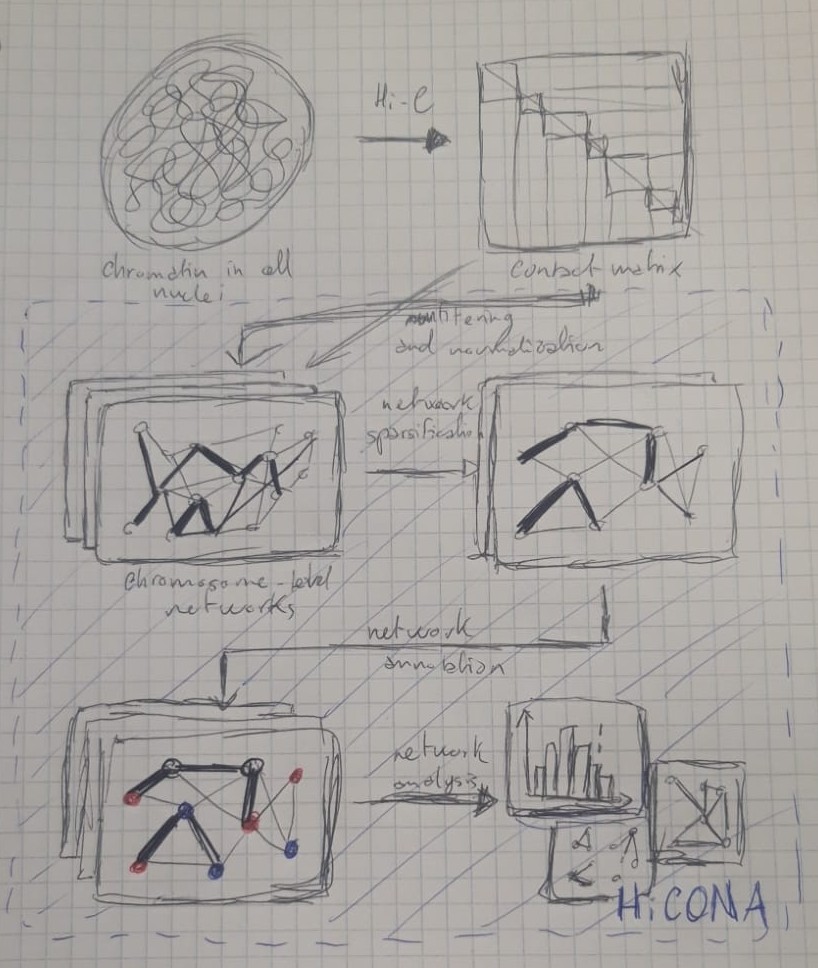 Hi-C
Chromatin in cell
nuclei
Contact matrix
and normalization
network
sparsification
Chromosome-level
networks
network
annotation
network
analysis
HiCONA